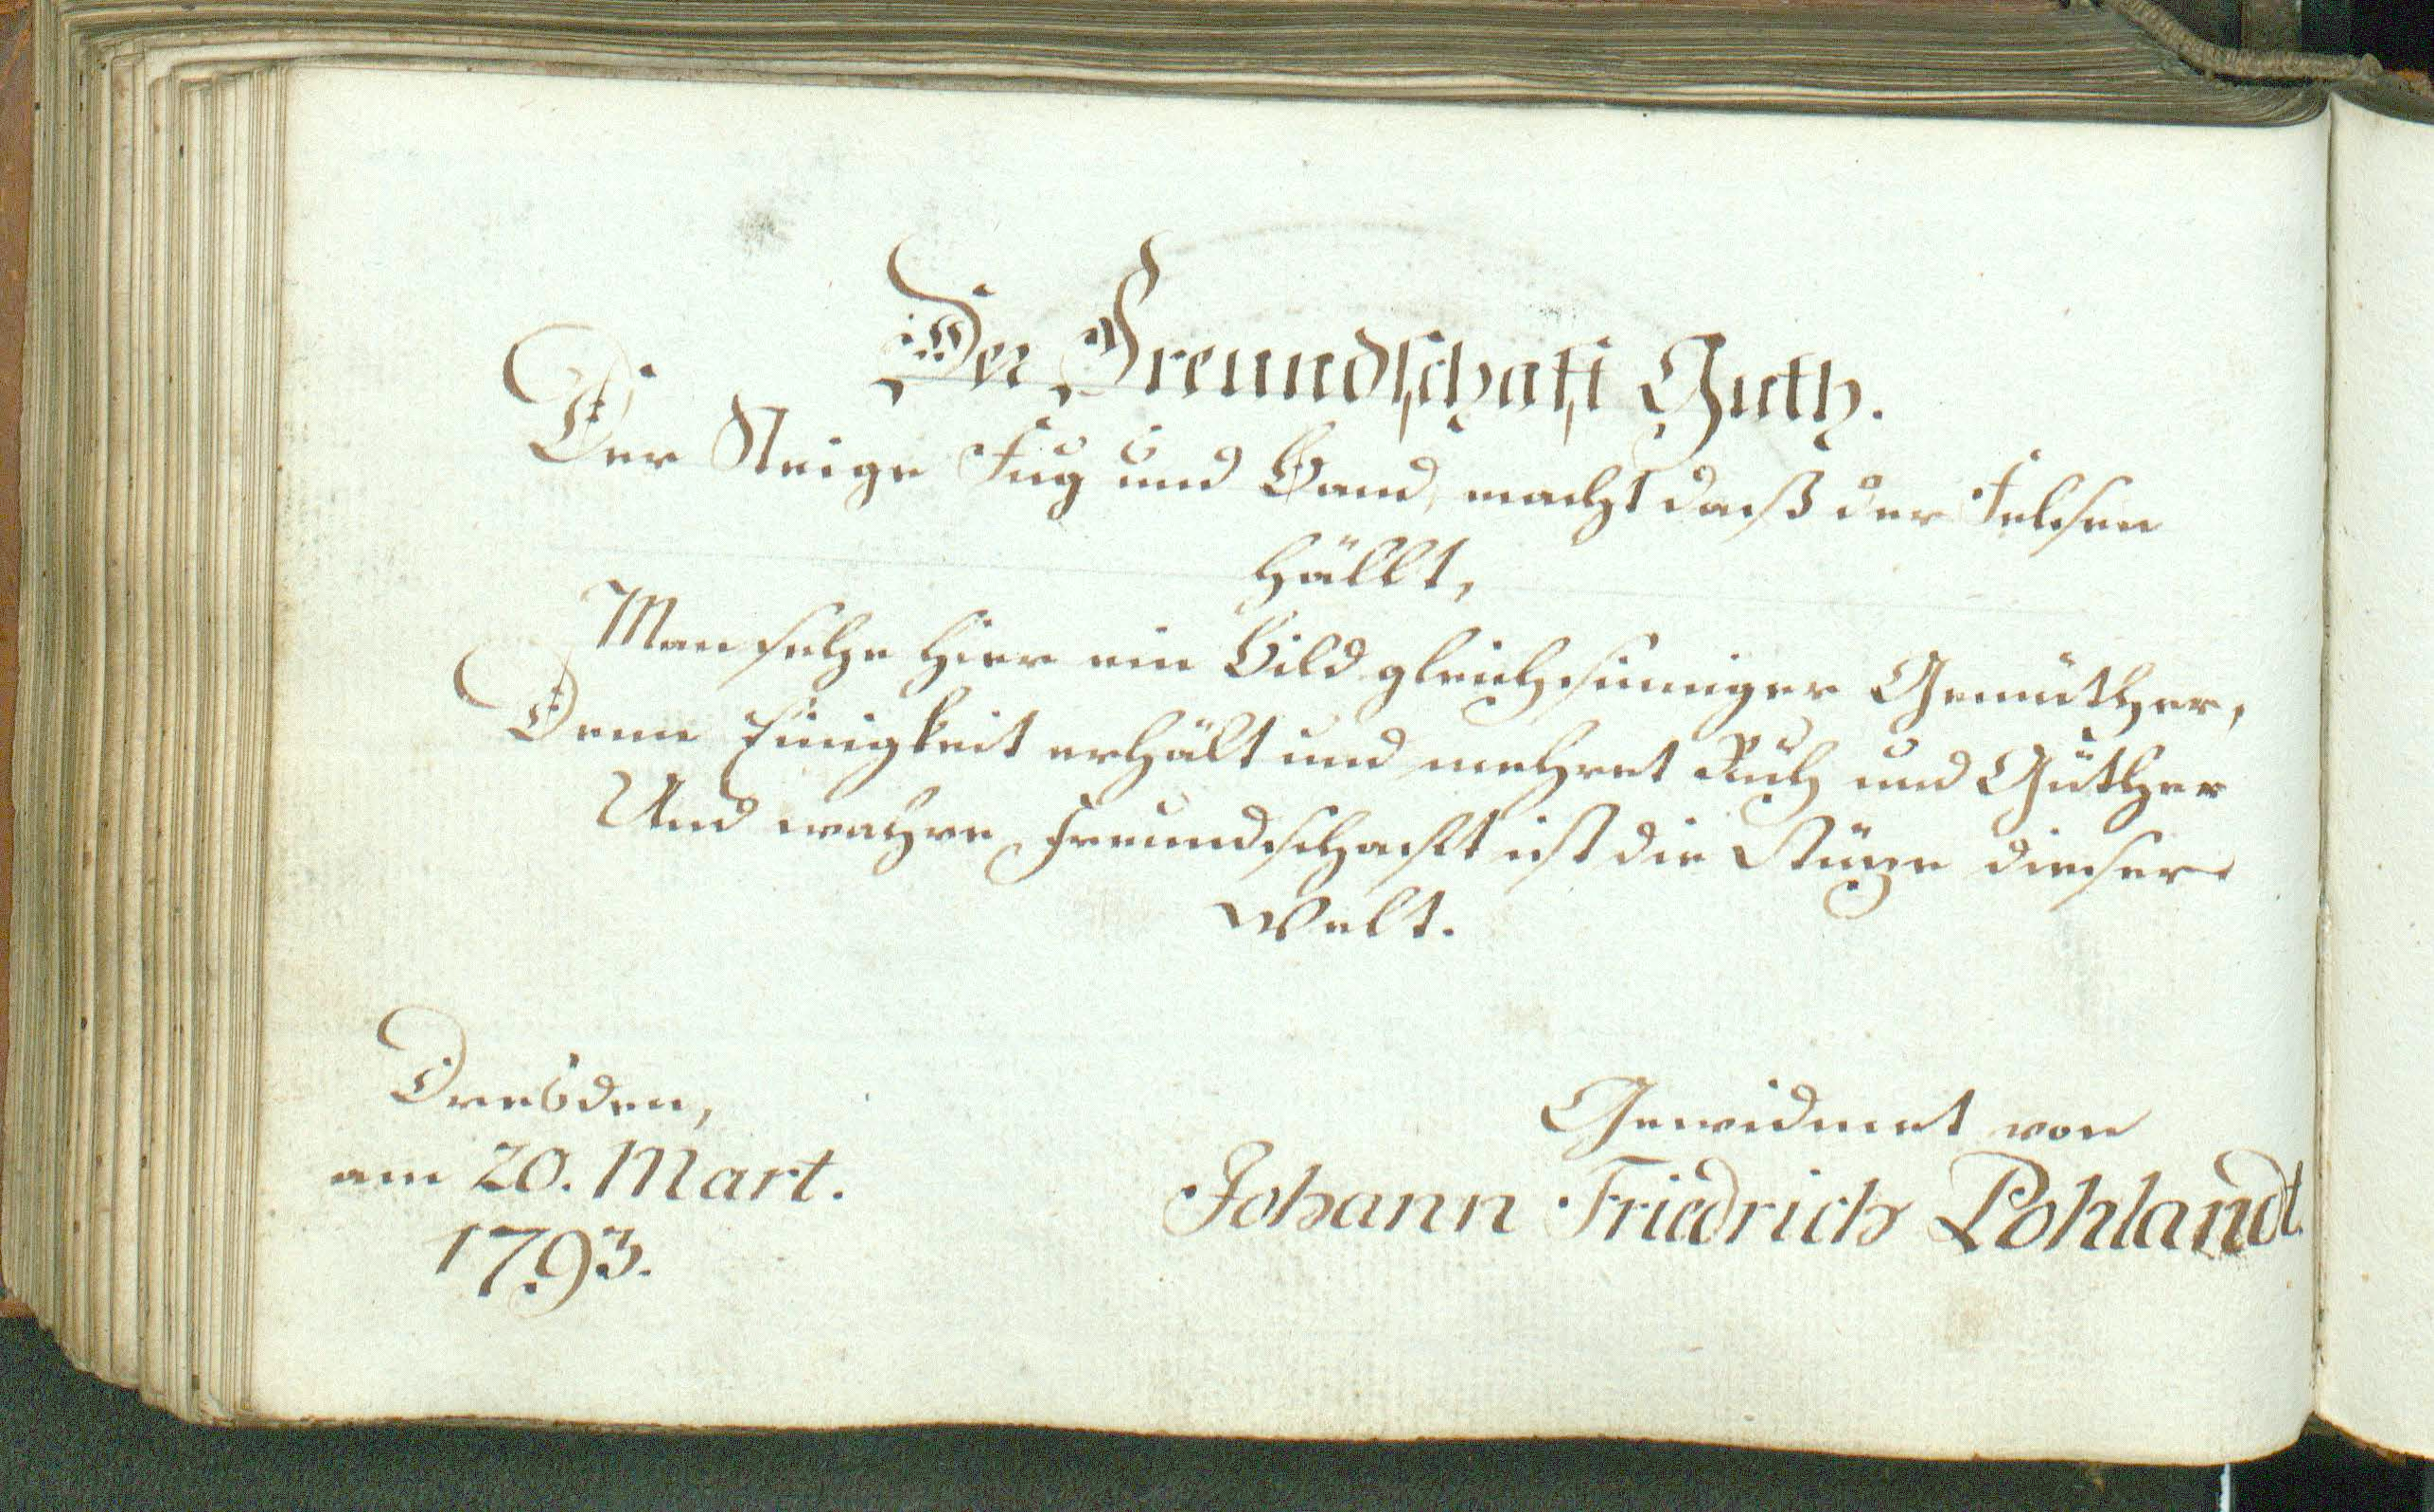 Der Freundschaft Guth.
Der Steige Fug und Band, macht daß der Felsen
hällt,
Man sehe hier ein Bild gleichsinniger Gemüther,
Denn Einigkeit erhält und mehret Ruh und Güther
Und wahre Freundschaft ist die Stüze dieser
Welt.
Dresden,
am 20. Mart.
1793.
Gewidmet von
Johann Friedrich Pohlandt